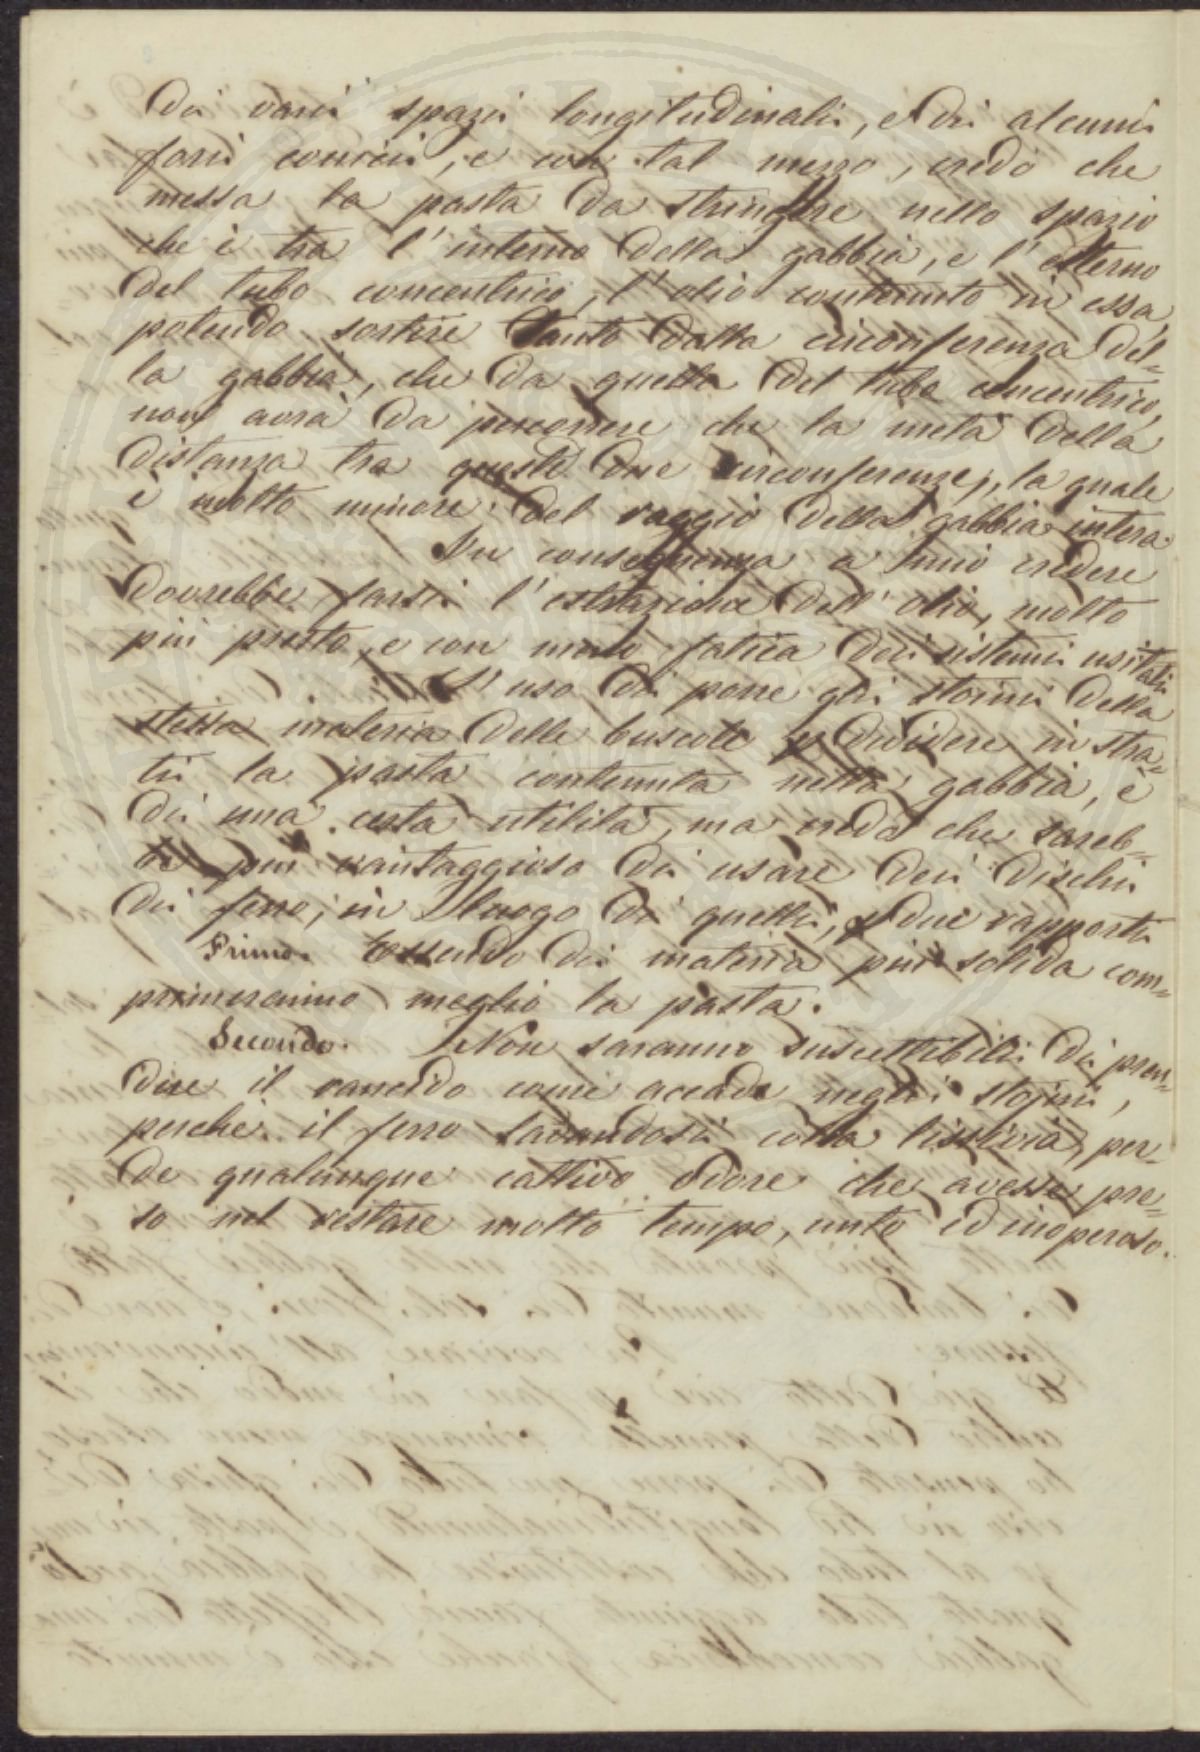 di varii spazii longitudinali, e di alcuni
fori conici, e con tal mezzo, credo che
messa la pasta da stringere nello spazio
che è tra l'interno della gabbia, e l'esterno
del tubo concentrico, l'olio contenuto in essa,
potendo sortire tanto dalla circonferenza del=
la gabbia, che da quella del tubo concentrico,
non avrà da percorrere che la metà della
distanza tra queste due circonferenze, la quale
è molto minore del raggio della gabbia intera.
In conseguenza a mio credere
dovrebbe farsi l'estrazione dell'olio, molto
più presto, e con meno fatica dei sistemi usitati
L'uso di porre gli stoini della
stessa materia delle buscole p dividere in stra=
ti la pasta contenuta nella gabbia, è
di una certa utilità, ma credo che sareb=
be più vantaggioso di usare dei dischi
di ferro, in luogo di quelli, p due rapporti
Primo. Essendo di materia più solida com=
primeranno meglio la pasta.
Secondo. Non saranno suscettibili di pren=
dere il rancido come accade negli stoini,
perchè il ferro lavandosi colla lissivia, per=
de qualunque cattivo odore che avesse pre=
so nel restare molto tempo, unto ed inoperoso.